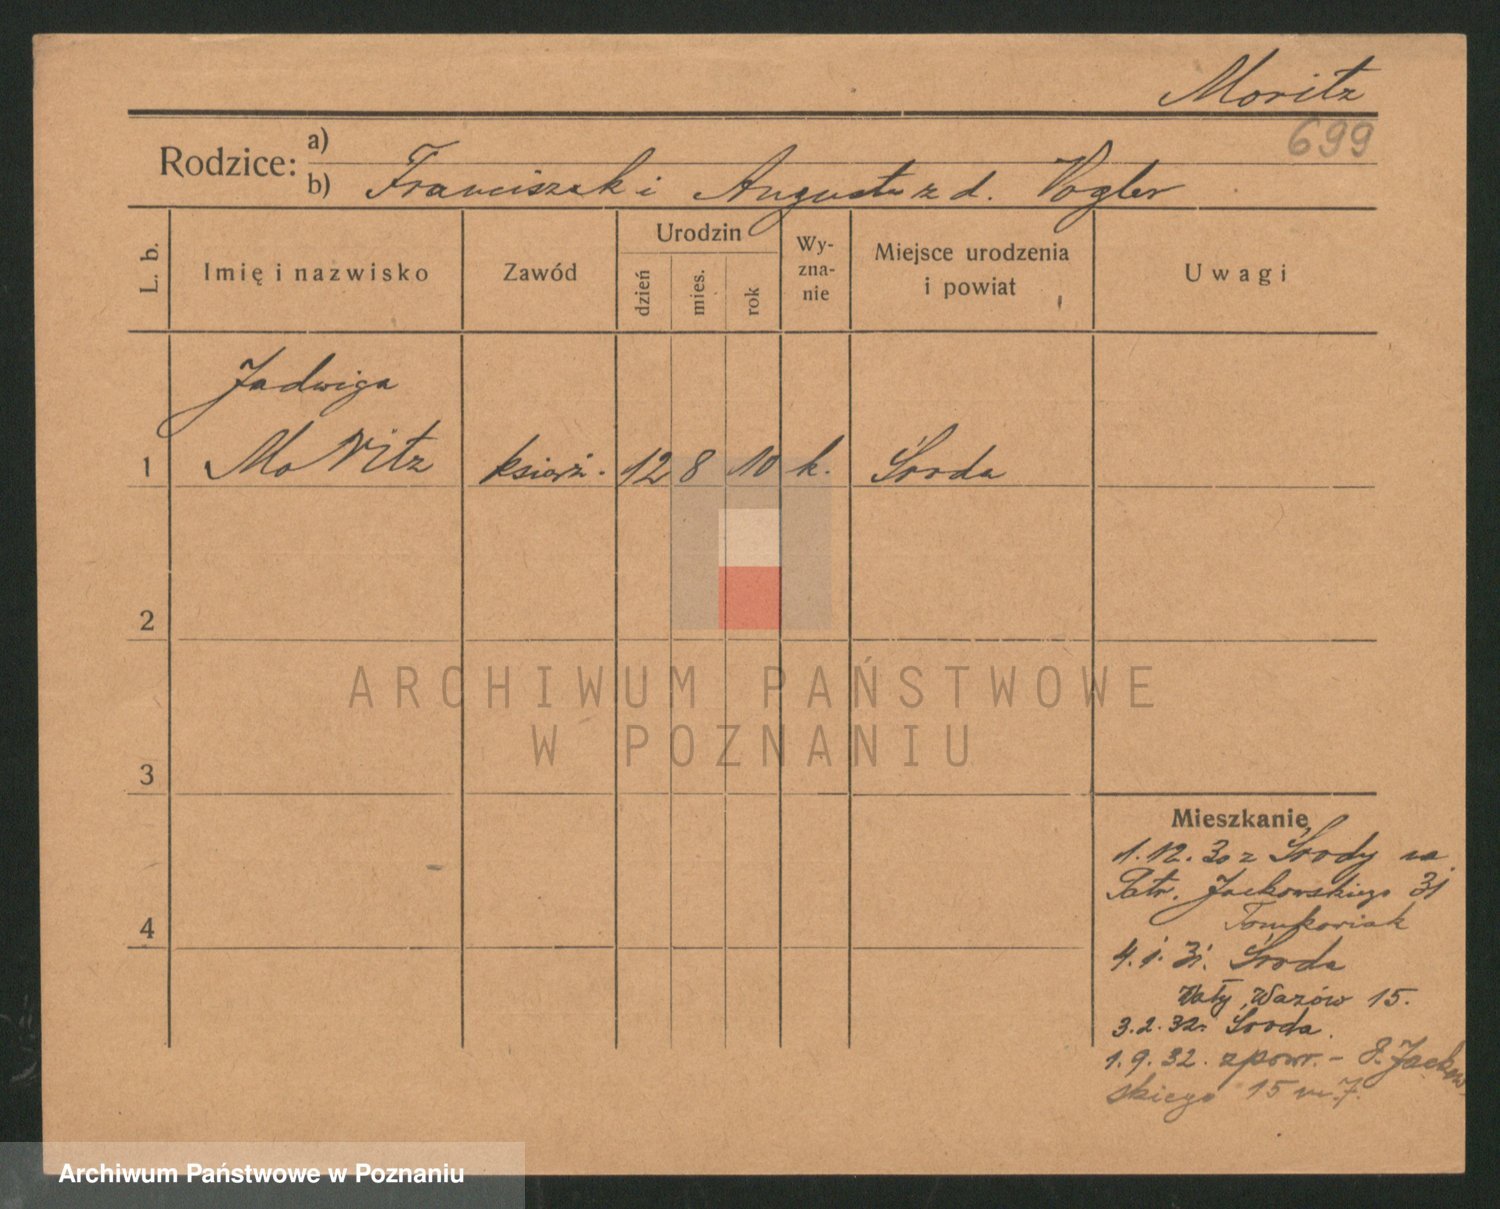 Moritz
699
Rodzice: a)
b) Franciszek i Augusta z d. Vogler
L. b.
Imię i nazwisko
Zawód
Urodzin
dzień
mies.
rok
Wy-
zna-
nie
Miejsce urodzenia
i powiat
Uwagi
Jadwiga
1 Moritz 12 8 10 k. Środa
2
3
4
Mieszkanie
1.12.30 z Środy na
Patr. Jackowskiego 31
Tomkowiak
4.1.31. Środa
Wały Wazów 15.
3.2.32. Środa.
1.9.32. z powr. - P. Jackow-
skiego 15 m. 7.
ARCHIWUM PAŃSTWOWE
W POZNANIU
Archiwum Państwowe w Poznaniu